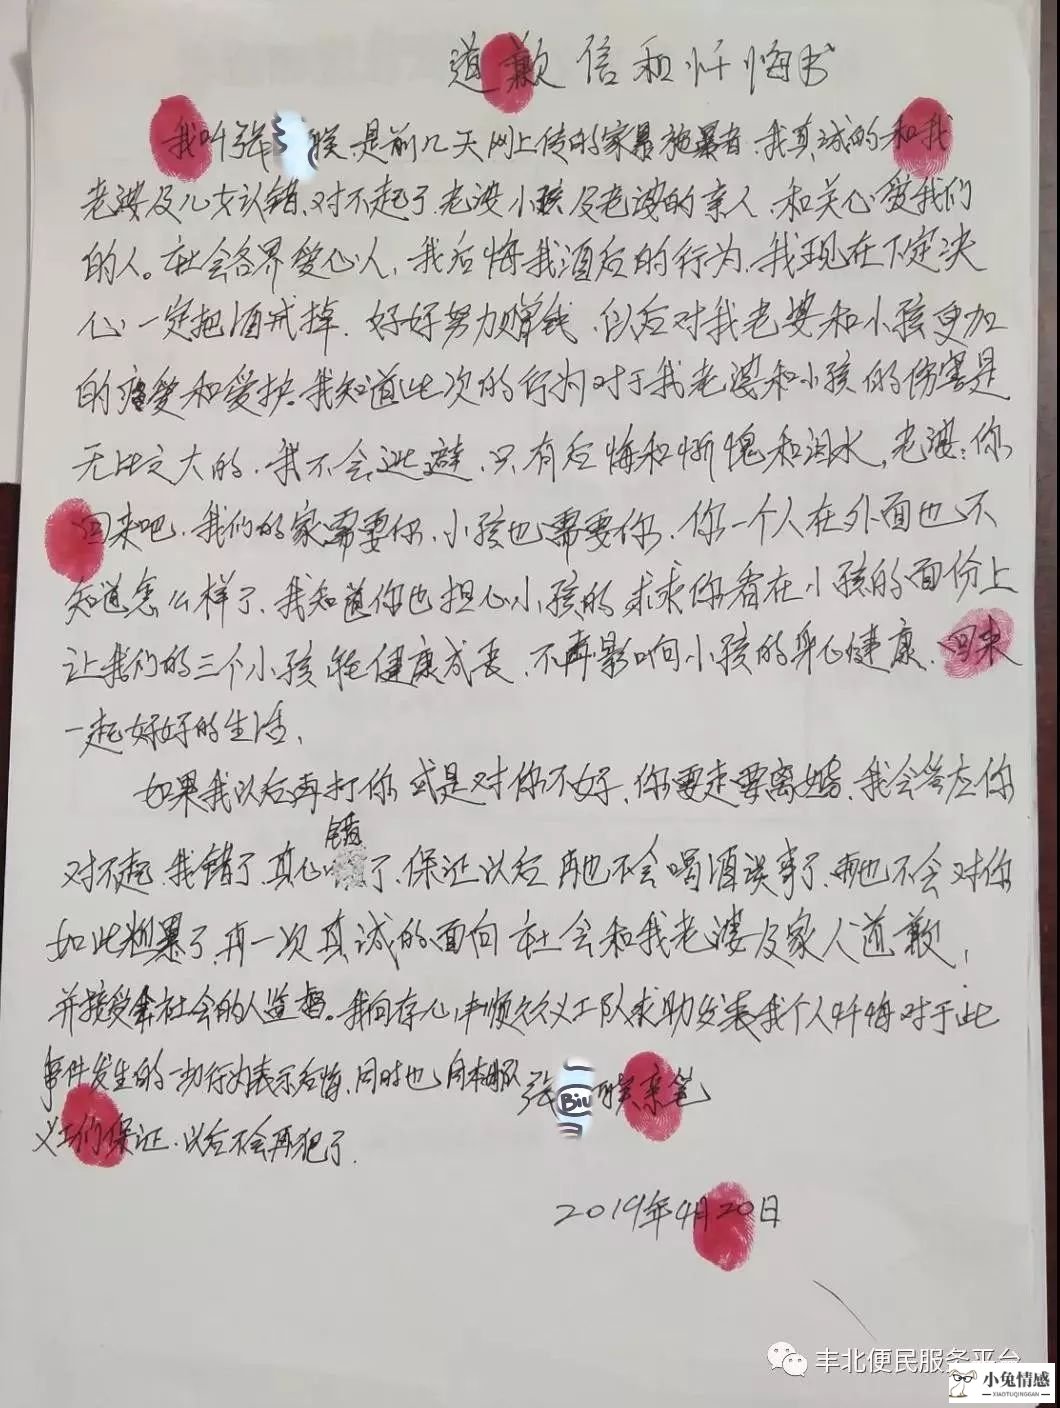 道歉信和忏悔书
我叫张 联.是前几天网上传的家暴施暴者.我真诚的和我
老婆及儿女认错.对不起了.老婆小孩及老婆的亲人.和关心爱我们
的人。社会各界爱心人,我后悔我酒后的行为.我现在下定决
心一定把酒戒掉.好好努力赚钱.以后对我老婆和小孩更加
的疼爱和爱护.我知道此次的行为对于我老婆和小孩的伤害是
无比之大的.我不会逃避.只有后悔和惭愧和泪水,老婆:你
回来吧.我们的家需要你.小孩也需要你.你一个人在外面也不
知道怎么样了.我知道你也担心小孩的求求你看在小孩的面份上
让我们的三个小孩能健康成长.不再影响小孩的身心健康.回来
一起好好的生活.
如果我以后再打你或是对你不好.你要走要离婚.我会答应你
对不起.我错了.真心错了.保证以后再也不会喝酒误事了.再也不会对你
如此粗暴了.再一次真诚的面向社会和我老婆及家人道歉,
并接受社会的人监督。我向存心丰顺义工队求助发表我个人忏悔对于此
事件发生的一切行为表示后悔.同时也向 队
义工们保证.以后不会再犯了.
张 Biu 联亲笔
2019年4月20日
丰北便民服务平台
小兔情感
XIAOTUQINGGAN